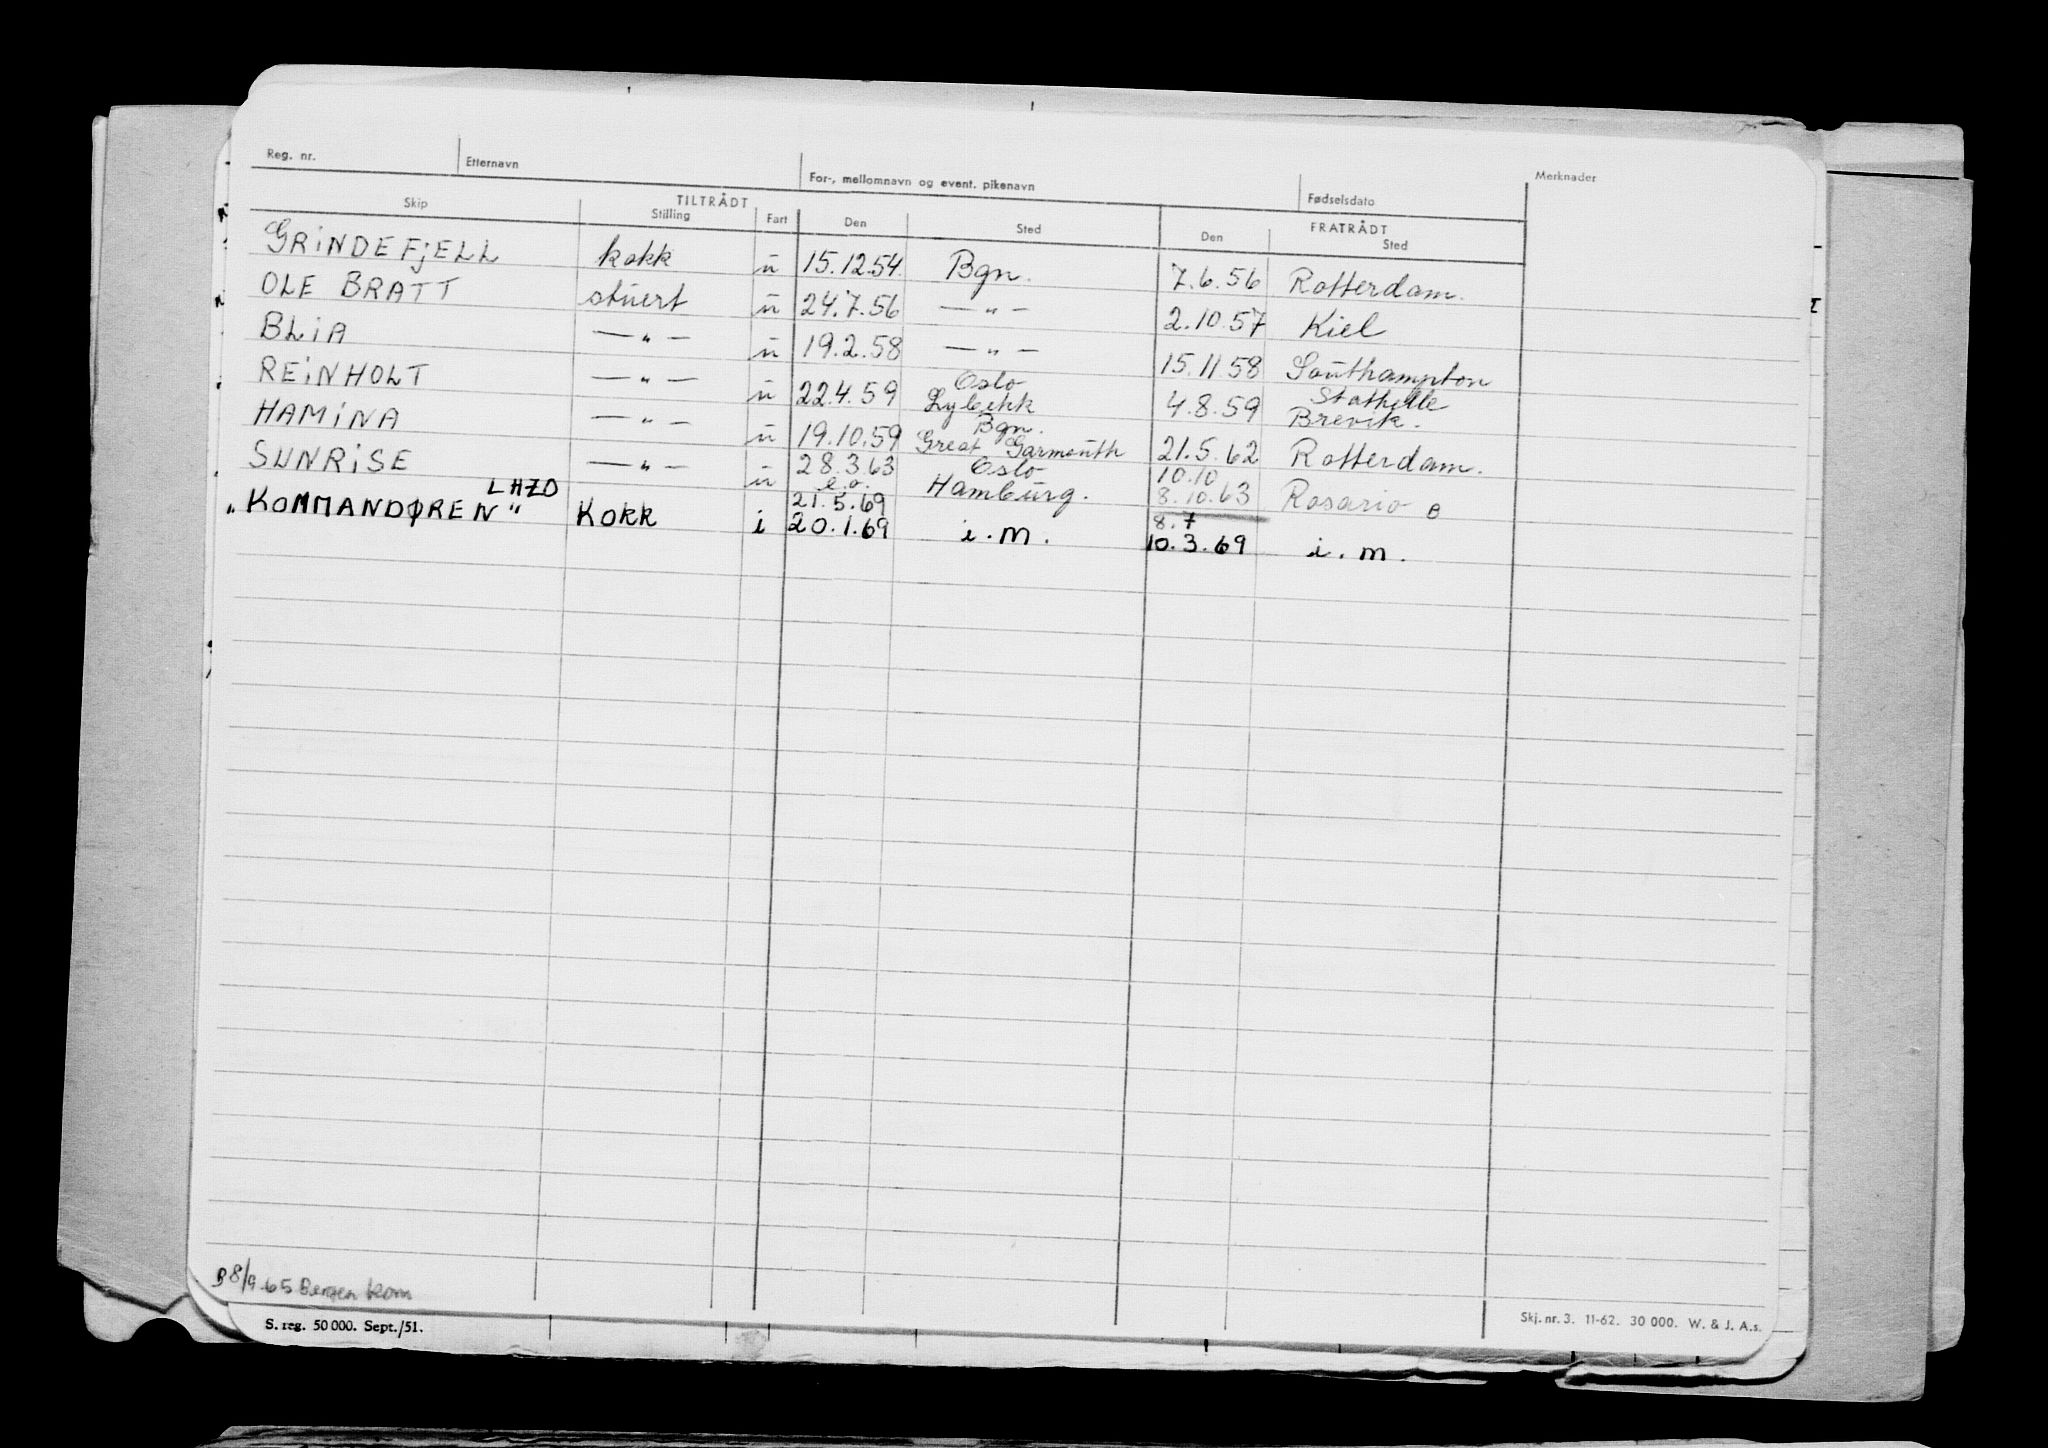 Reg. nr. Etternavn For-, mellomnavn og event. pikenavn Fødselsdato Merknader
TILTRÅDT FRATRÅDT
Skip Stilling Fart Den Sted Den Sted
GRINDEFJELL kokk u 15.12.54. Bgn. 7.6.56 Rotterdam.
OLE BRATT stuert u 24.7.56 — " — 2.10.57 Kiel
BLIA — " — u 19.2.58 — " — 15.11.58 Southampton
REINHOLT — " — u 22.4.59 Oslo Lybekk 4.8.59 Stathelle Brevik.
HAMINA — " — u 19.10.59 Bgn. Great Garmouth 21.5.62 Rotterdam.
SUNRISE — " — u 28.3.63 e.o. Oslo Hamburg. 10.10 8.10.63 Rosario B
LHZO 21.5.69 8.7
"KOMMANDØREN" Kokk i 20.1.69 i.m. 10.3.69 i.m.
B 8/9.65 Bergen kom
S. reg. 50 000. Sept./51.
Skj. nr. 3. 11-62. 30 000. W. & J. A.s.